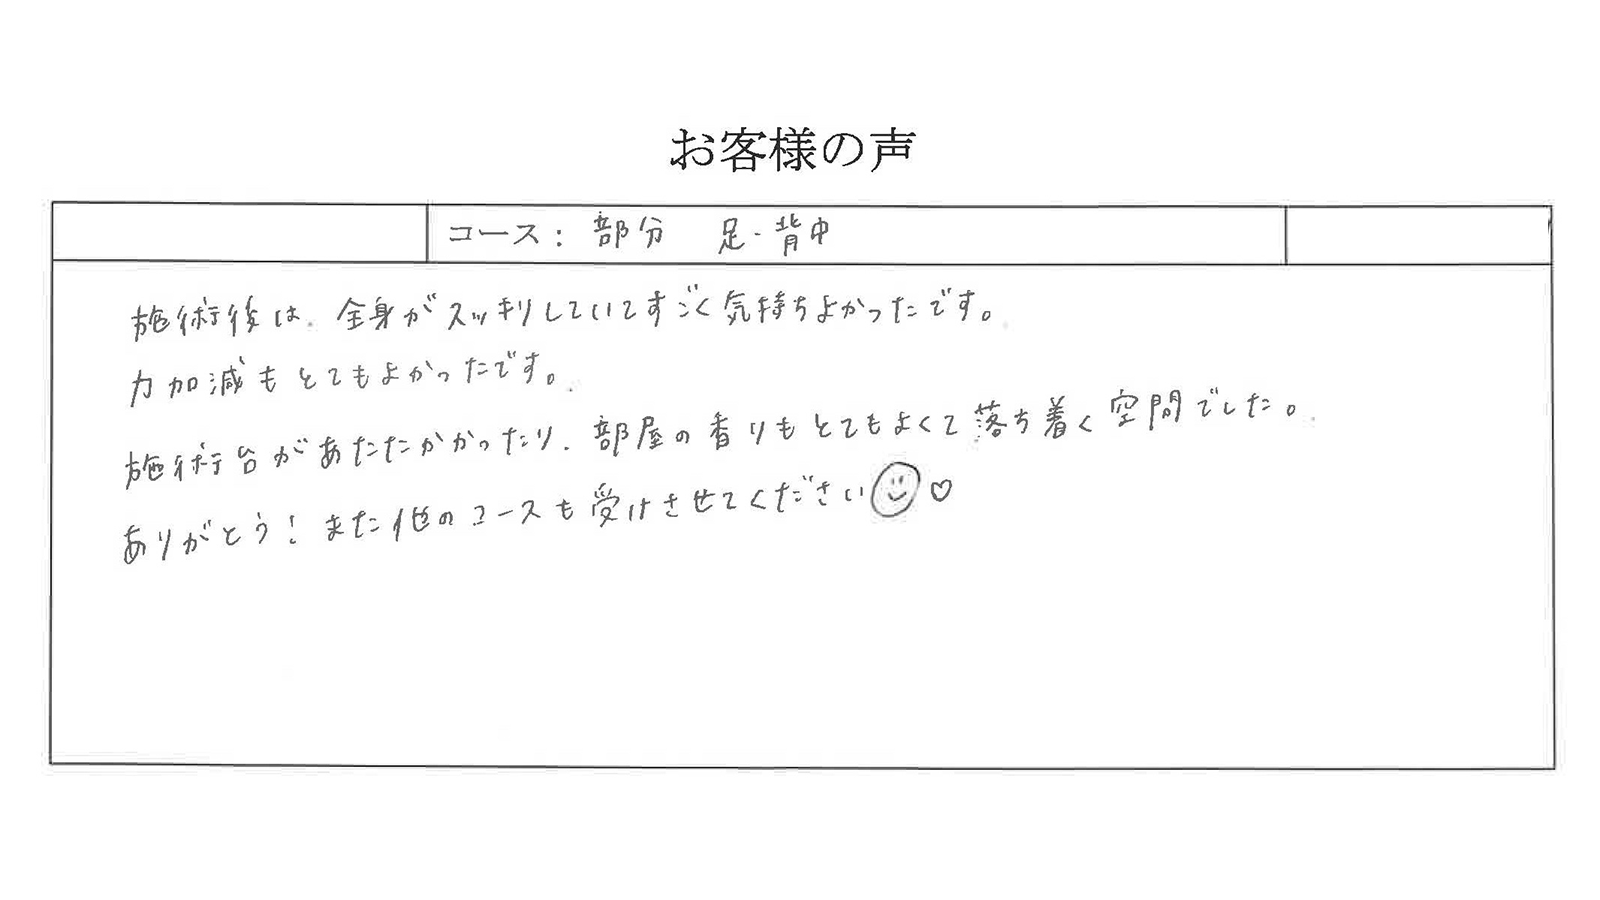 お客様の声
コース： 部分　足・背中
施術後は、全身がスッキリしていてすごく気持ちよかったです。
力加減もとてもよかったです。
施術台があたたかかったり、部屋の香りもとてもよくて落ち着く空間でした。
ありがとう！また他のコースも受けさせてください☺♡